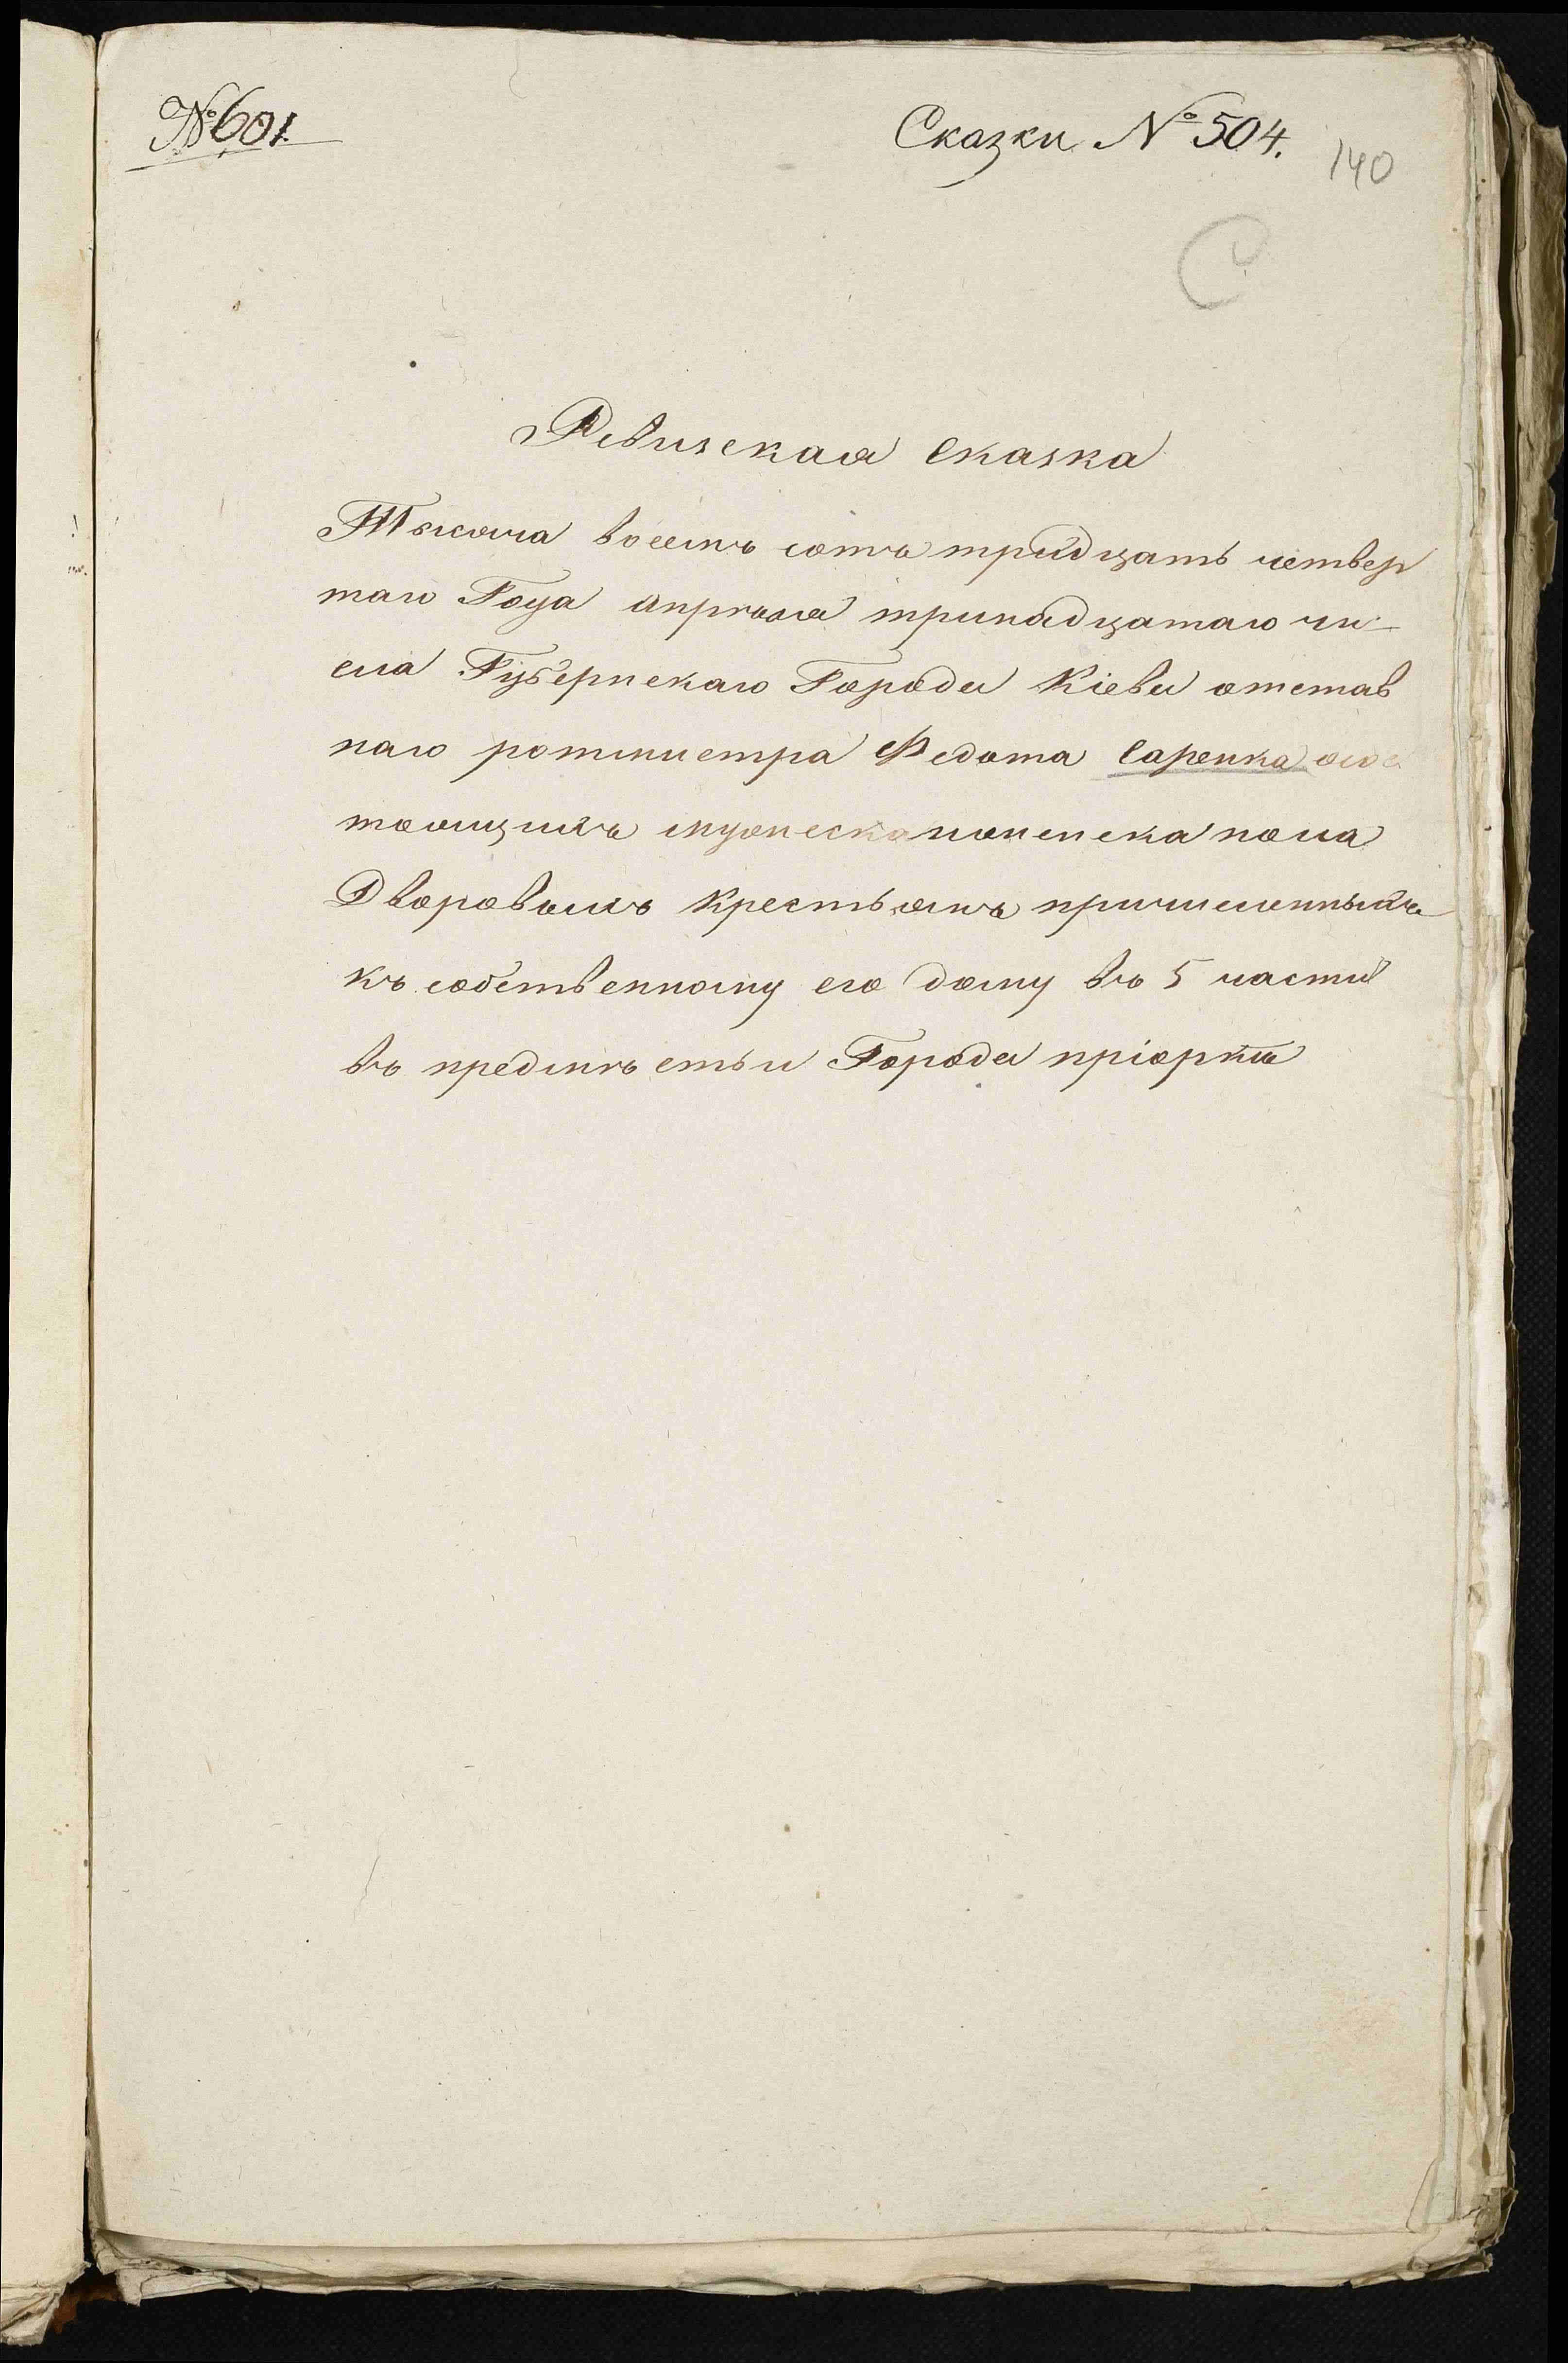 № 601.
Сказки № 504.
140
Ревизская сказка
Тысяча восемь сотъ тридцать четвер
таго Года апрѣля тринадцатаго чи-
сла Губернскаго Города Кіева отстав
наго ротмистра Федота Саренка осос
тоящихъ мужеска и женска пола
Дворовымъ крестьямъ причисленнымъ
къ собственному его дому въ 5 части
въ предмѣстьи Города пріоркѣ